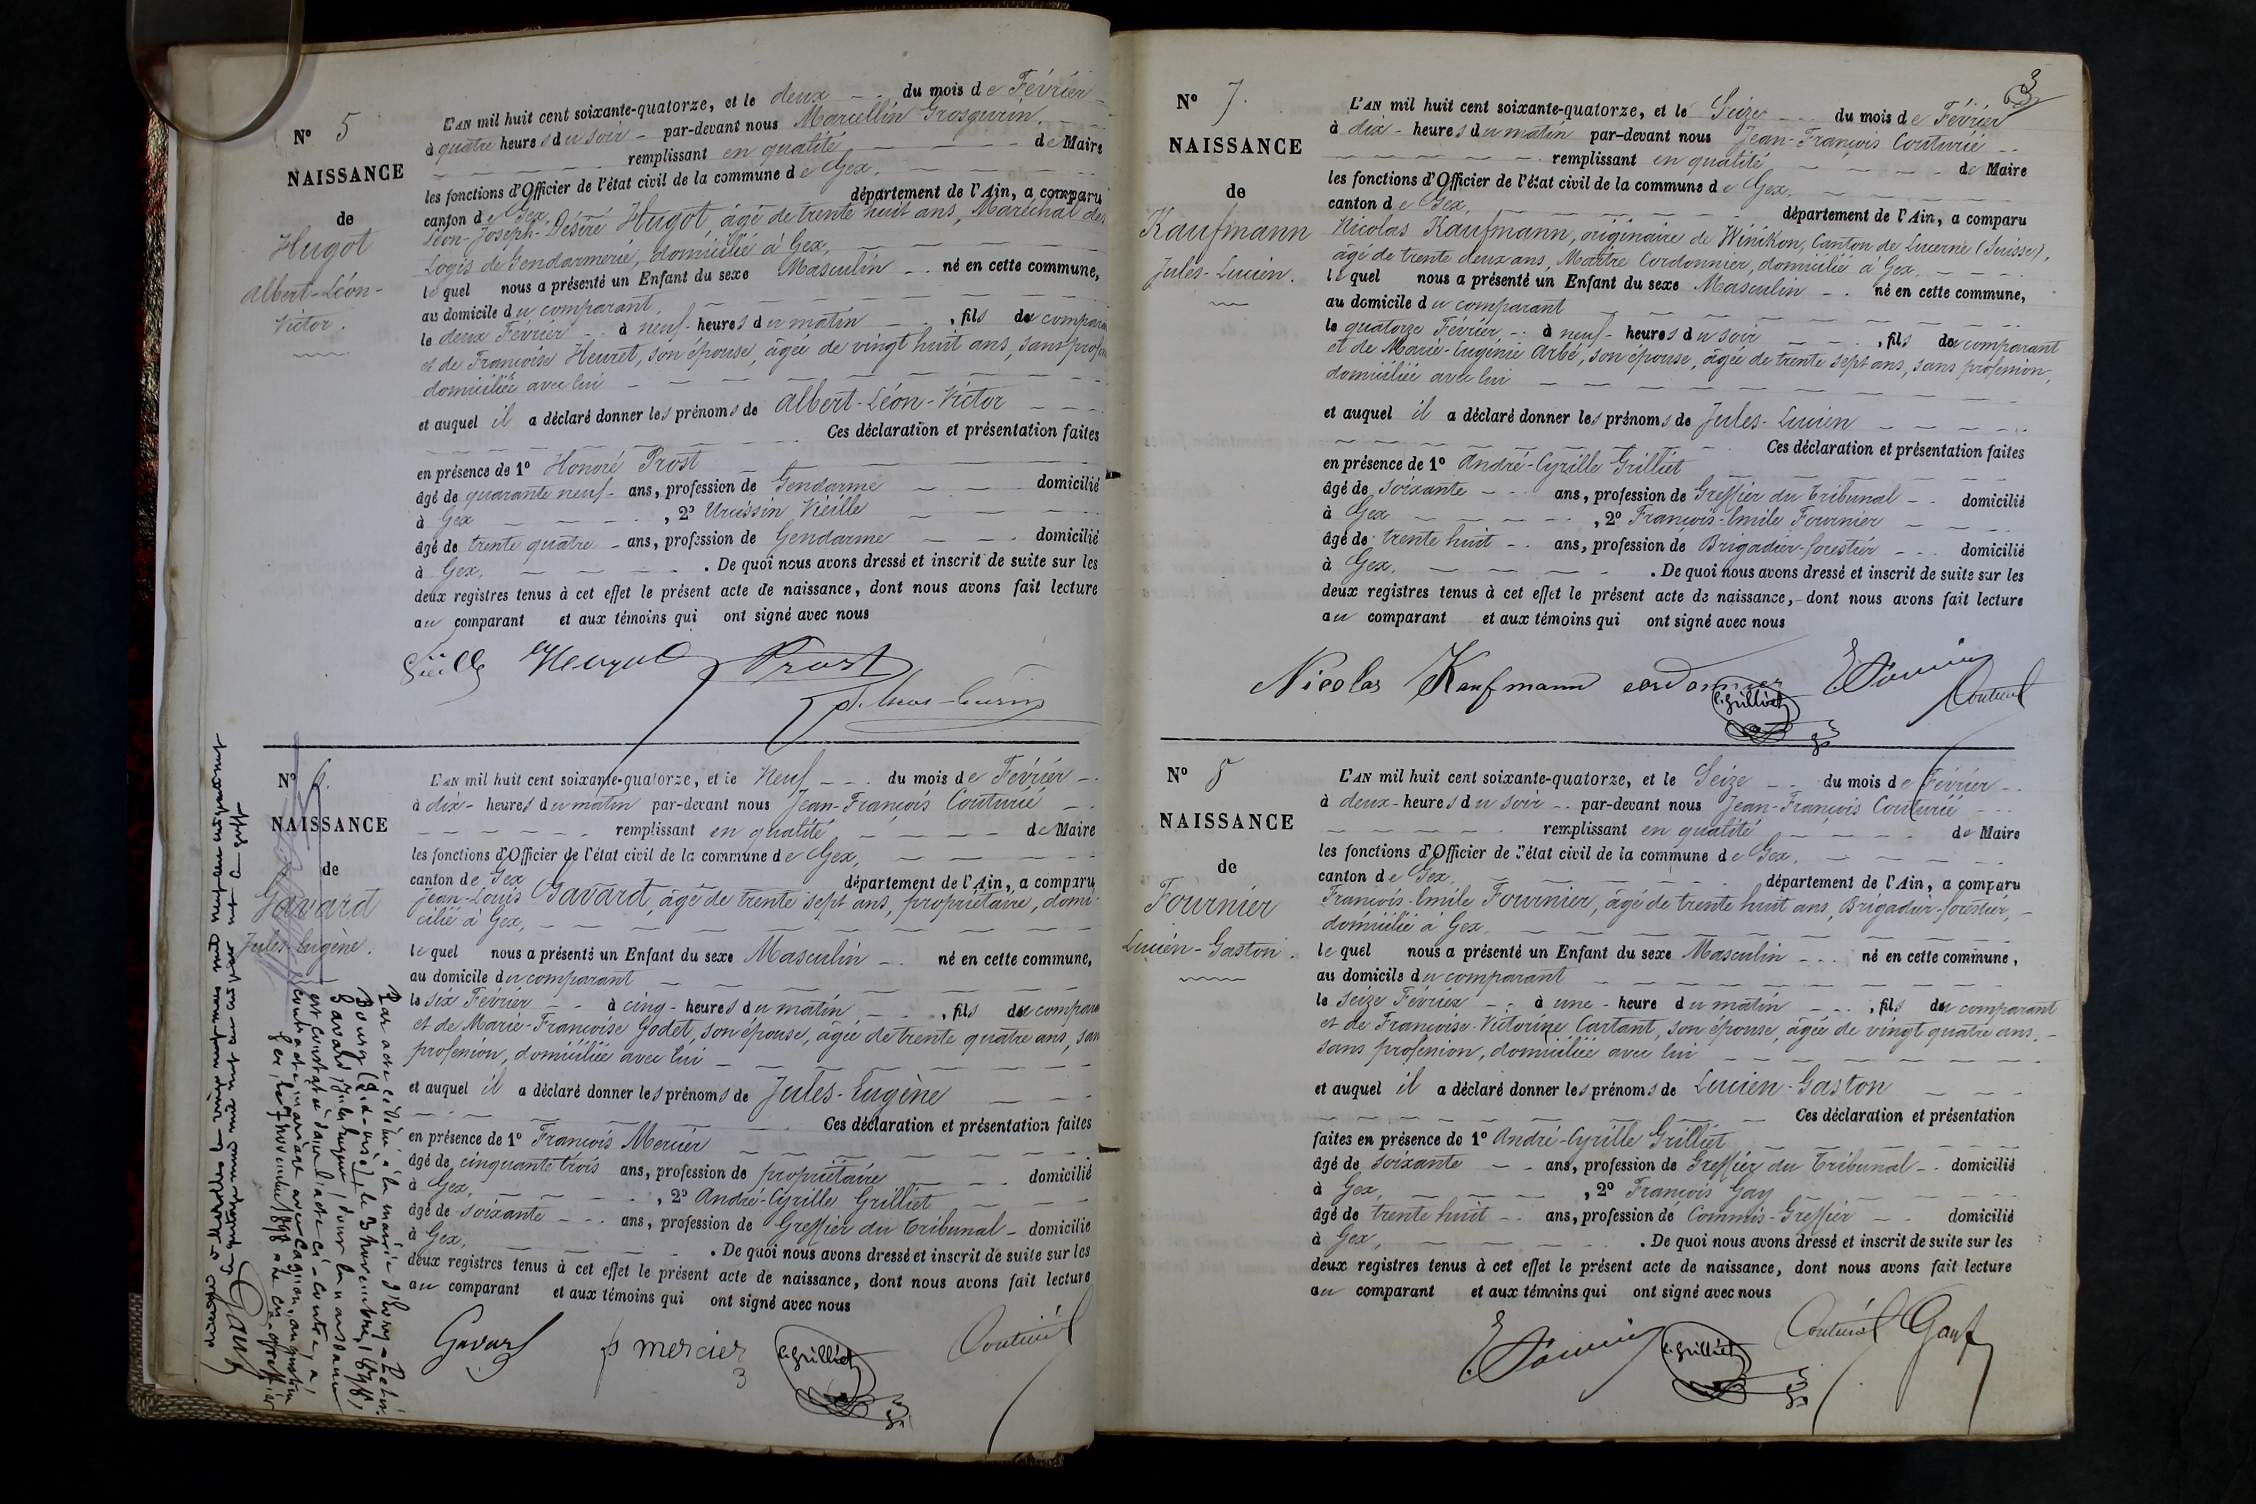 N° 5
NAISSANCE
de
Hugot
Albert-Léon-
Victor.
L'AN mil huit cent soixante-quatorze, et le deux du mois de Février
à quatre heures du soir par-devant nous Marcellin Grosgurin.
remplissant en qualité de Maire
les fonctions d'Officier de l'état civil de la commune de Gex,
canton de Gex, département de l'Ain, a comparu
Léon-Joseph-Désiré Hugot, âgé de trente huit ans, Maréchal des
Logis de Gendarmerie, domicilié à Gex,
lequel nous a présenté un Enfant du sexe Masculin né en cette commune,
au domicile du comparant,
le deux Février à neuf heures du matin, fils du comparant
et de Françoise Heuret, son épouse, âgée de vingt huit ans, sans profes
domiciliée avec lui
et auquel il a déclaré donner les prénoms de Albert-Léon-Victor
Ces déclaration et présentation faites
en présence de 1° Honoré Prost
âgé de quarante neuf ans, profession de Gendarme domicilié
à Gex, 2° Vieille
âgé de trente quatre ans, profession de Gendarme domicilié
à Gex. De quoi nous avons dressé et inscrit de suite sur les
deux registres tenus à cet effet le présent acte de naissance, dont nous avons fait lecture
au comparant et aux témoins qui ont signé avec nous
Vieille Hugot Prost
N° 6.
NAISSANCE
de
Gavard
Jules-Eugène.
L'AN mil huit cent soixante-quatorze, et le Neuf du mois de Février
à dix heures du matin par-devant nous Jean-François Couturié
remplissant en qualité de Maire
les fonctions d'Officier de l'état civil de la commune de Gex,
canton de Gex département de l'Ain, a comparu
Jean-Louis Gavard, âgé de trente sept ans, propriétaire, domi-
cilié à Gex,
lequel nous a présenté un Enfant du sexe Masculin né en cette commune,
au domicile du comparant
le six Février à cinq heures du matin, fils du compara
et de Marie-Françoise Godet, son épouse, âgée de trente quatre ans, san
profession, domiciliée avec lui
et auquel il a déclaré donner les prénoms de Jules-Eugène
Ces déclaration et présentation faites
en présence de 1° François Mercier
âgé de cinquante trois ans, profession de propriétaire domicilié
à Gex, 2° André-Cyrille Grilliet
âgé de soixante ans, profession de Greffier du Tribunal domicilié
à Gex, De quoi nous avons dressé et inscrit de suite sur les
deux registres tenus à cet effet le présent acte de naissance, dont nous avons fait lecture
au comparant et aux témoins qui ont signé avec nous
Gavard mercier C. Grilliet Couturié
Par acte célébré à la mairie
Bourg le 3 novembre 1898,
Gavard, Jules Eugène, dont la naissance
est constatée dans l'acte ci-contre, a
contracté mariage avec
Gex, le novembre 1898. Le greffier
N° 7.
NAISSANCE
de
Kaufmann
Jules-Lucien.
3
L'AN mil huit cent soixante-quatorze, et le Seize du mois de Février
à dix heures du matin par-devant nous Jean-François Couturié
remplissant en qualité de Maire
les fonctions d'Officier de l'état civil de la commune de Gex,
canton de Gex, département de l'Ain, a comparu
Nicolas Kaufmann, originaire de Winikon, Canton de Lucerne (Suisse),
âgé de trente deux ans, Maître Cordonnier, domicilié à Gex,
lequel nous a présenté un Enfant du sexe Masculin né en cette commune,
au domicile du comparant
le quatorze Février à neuf heures du soir, fils du comparant
et de Marie-Eugénie Arbé, son épouse, âgée de trente sept ans, sans profession,
domiciliée avec lui
et auquel il a déclaré donner les prénoms de Jules-Lucien
Ces déclaration et présentation faites
en présence de 1° André-Cyrille Grilliet
âgé de soixante ans, profession de Greffier du Tribunal domicilié
à Gex, 2° François-Emile Fournier
âgé de trente huit ans, profession de Brigadier-forestier domicilié
à Gex. De quoi nous avons dressé et inscrit de suite sur les
deux registres tenus à cet effet le présent acte de naissance, dont nous avons fait lecture
au comparant et aux témoins qui ont signé avec nous
Nicolas Kaufmann cordonnier C. Grilliet E. Fournier Couturié
N° 8
NAISSANCE
de
Fournier
Lucien-Gaston.
L'AN mil huit cent soixante-quatorze, et le Seize du mois de Février
à deux heures du soir par-devant nous Jean-François Couturié
remplissant en qualité de Maire
les fonctions d'Officier de l'état civil de la commune de Gex,
canton de Gex, département de l'Ain, a comparu
François-Emile Fournier, âgé de trente huit ans, Brigadier-forestier,
domicilié à Gex
lequel nous a présenté un Enfant du sexe Masculin né en cette commune,
au domicile du comparant
le Seize Février à une heure du matin, fils du comparant
et de Françoise-Victorine Cartant, son épouse, âgée de vingt quatre ans,
sans profession, domiciliée avec lui
et auquel il a déclaré donner les prénoms de Lucien-Gaston
Ces déclaration et présentation
faites en présence de 1° André-Cyrille Grilliet
âgé de soixante ans, profession de Greffier du Tribunal domicilié
à Gex, 2° François Gay
âgé de trente huit ans, profession de Commis-Greffier domicilié
à Gex, De quoi nous avons dressé et inscrit de suite sur les
deux registres tenus à cet effet le présent acte de naissance, dont nous avons fait lecture
au comparant et aux témoins qui ont signé avec nous
E. Fournier C. Grilliet Couturié Gay